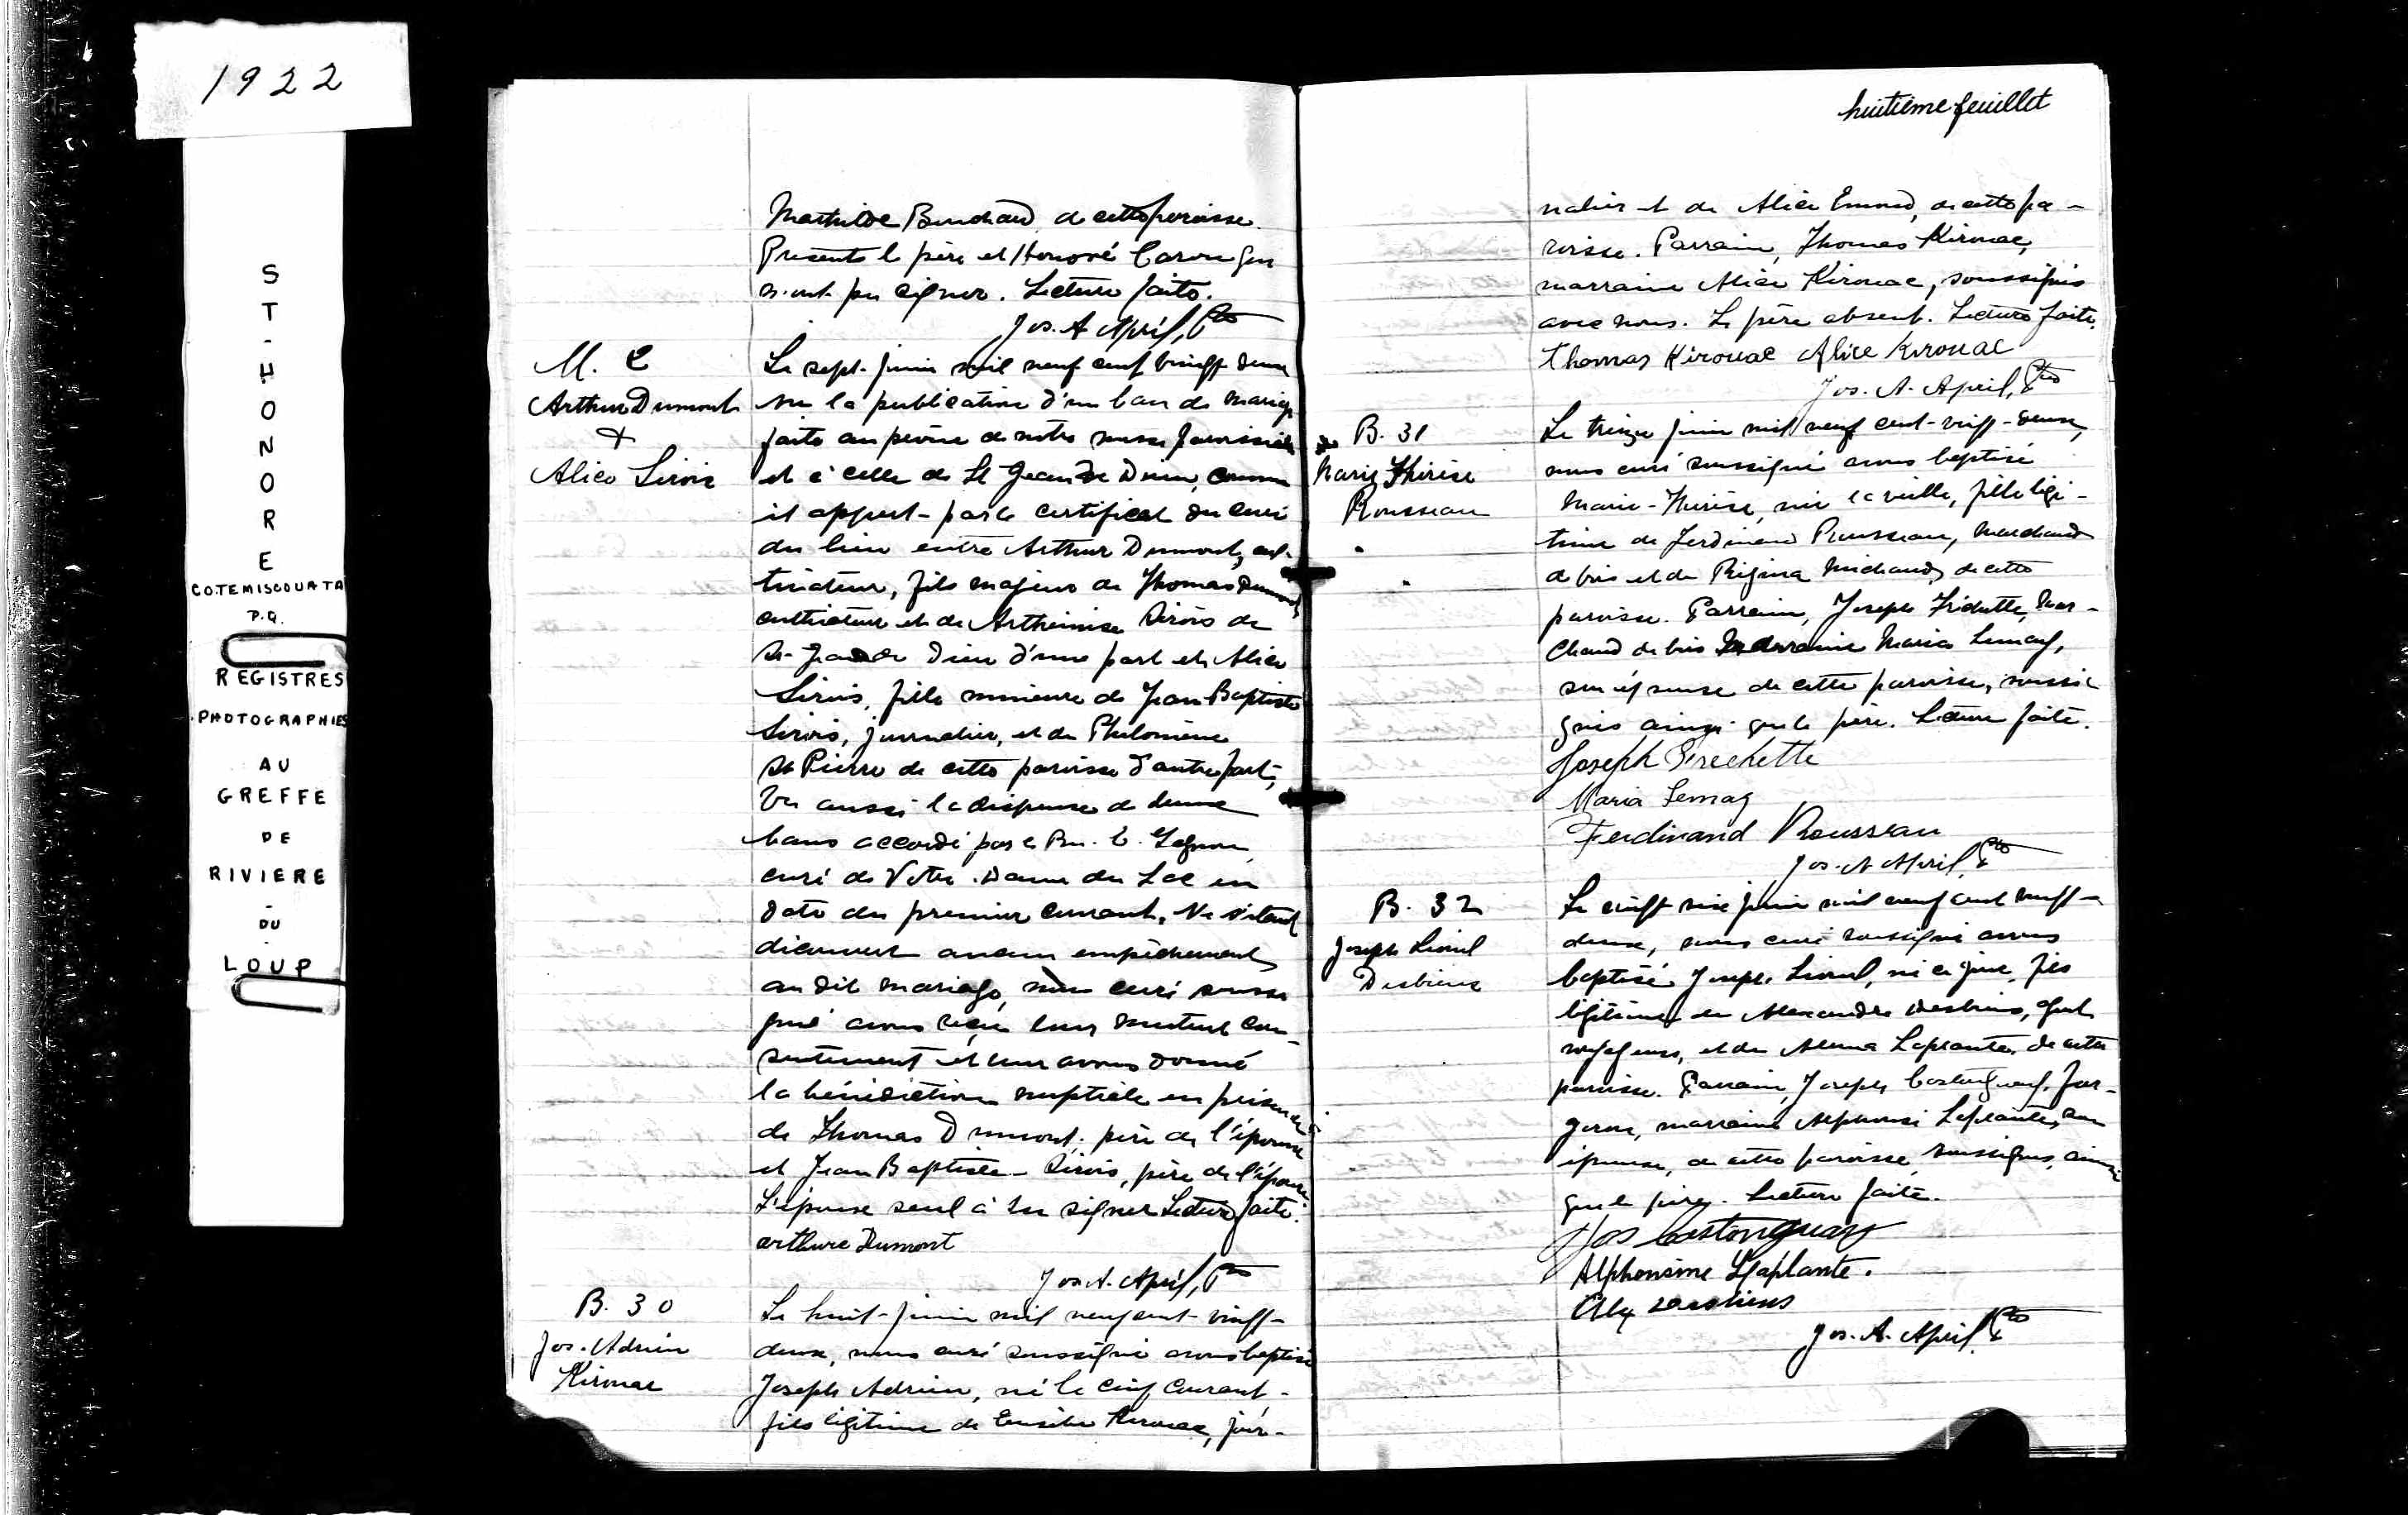 1922
ST-HONORE
CO.TEMISCOUATA
P.Q.
REGISTRES
PHOTOGRAPHIES
AU
GREFFE
DE
RIVIERE
-
DU
-
LOUP
Mathilde Bouchard, de cette paroisse.
Présents le père et Honoré Caron qui
n'ont pu signer. Lecture faite.
Jos. A. April, Ptre
M. 2
Arthur Dumont
+
Alice Sirois
Le sept juin mil neuf cent vingt deux
vu la publication d'un ban de mariage
faite au prône de notre messe paroissiale
et à celle de St Jean de Dieu, comme
il appert par le certificat du curé
du lieu entre Arthur Dumont, cul-
tivateur, fils majeur de Thomas Dumont
cultivateur et de Arthémise Sirois de
St-Jean de Dieu d'une part et Alice
Sirois, fille mineure de Jean Baptiste
Sirois, journalier, et de Philomène
St Pierre de cette paroisse d'autre part,
Vu aussi la dispense de deux
bans accordé par le Rev. C.
curé de Notre-Dame du Lac en
date du premier courant, Ne s'étant
découvert aucun empêchement
au dit mariage, nous curé soussi
gné avons reçu leur mutuel con-
sentement et leur avons donné
la bénédiction nuptiale en présence
de Thomas Dumont, père de l'époux
et Jean Baptiste Sirois, père de l'épouse
L'époux seul a su signer Lecture faite.
arthure Dumont
Jos. A. April, Ptre
B. 30
Jos. Adrien
Kirouac
Le huit juin mil neuf cent vingt-
deux, nous curé soussigné avons baptisé
Joseph Adrien, né le cinq courant,
fils légitime de Eusèbe Kirouac, jour-
huitième feuillet
nalier et de Alice Emond, de cette pa-
roisse. Parrain, Thomas Kirouac,
marraine Alice Kirouac, soussignés
avec nous. Le père absent. Lecture faite.
Thomas Kirouac Alice Kirouac
Jos. A. April, Ptre
B. 31
Marie Thérèse
Rousseau
Le treize juin mil neuf cent-vingt-deux,
nous curé soussigné avons baptisé
Marie-Thérèse, née la veille, fille légi-
time de Ferdinand Rousseau, marchand
de bois et de Régina Michaud, de cette
paroisse. Parrain, Joseph Fréchette, mar-
chand de bois Marraine Maria Lemay,
son épouse de cette paroisse, soussi
gnés ainsi que le père. Lecture faite.
Joseph Frechette
Maria Lemay
Ferdinand Rousseau
Jos. A. April, Ptre
B. 32
Joseph Lionel
Desbiens
Le vingt six juin mil neuf cent vingt-
deux, nous curé soussigné avons
baptisé Joseph Lionel, né ce jour, fils
légitime de Alexandre Desbiens,
voyageur, et de Alma Laplante, de cette
paroisse. Parrain, Joseph Castonguay, for-
geron, marraine Alphonsine Laplante, son
épouse, de cette paroisse, soussignés, ainsi
que le père. Lecture faite.
Jos Castonguay
Alphonsine Laplante.
Alex Desbiens
Jos. A. April, Ptre